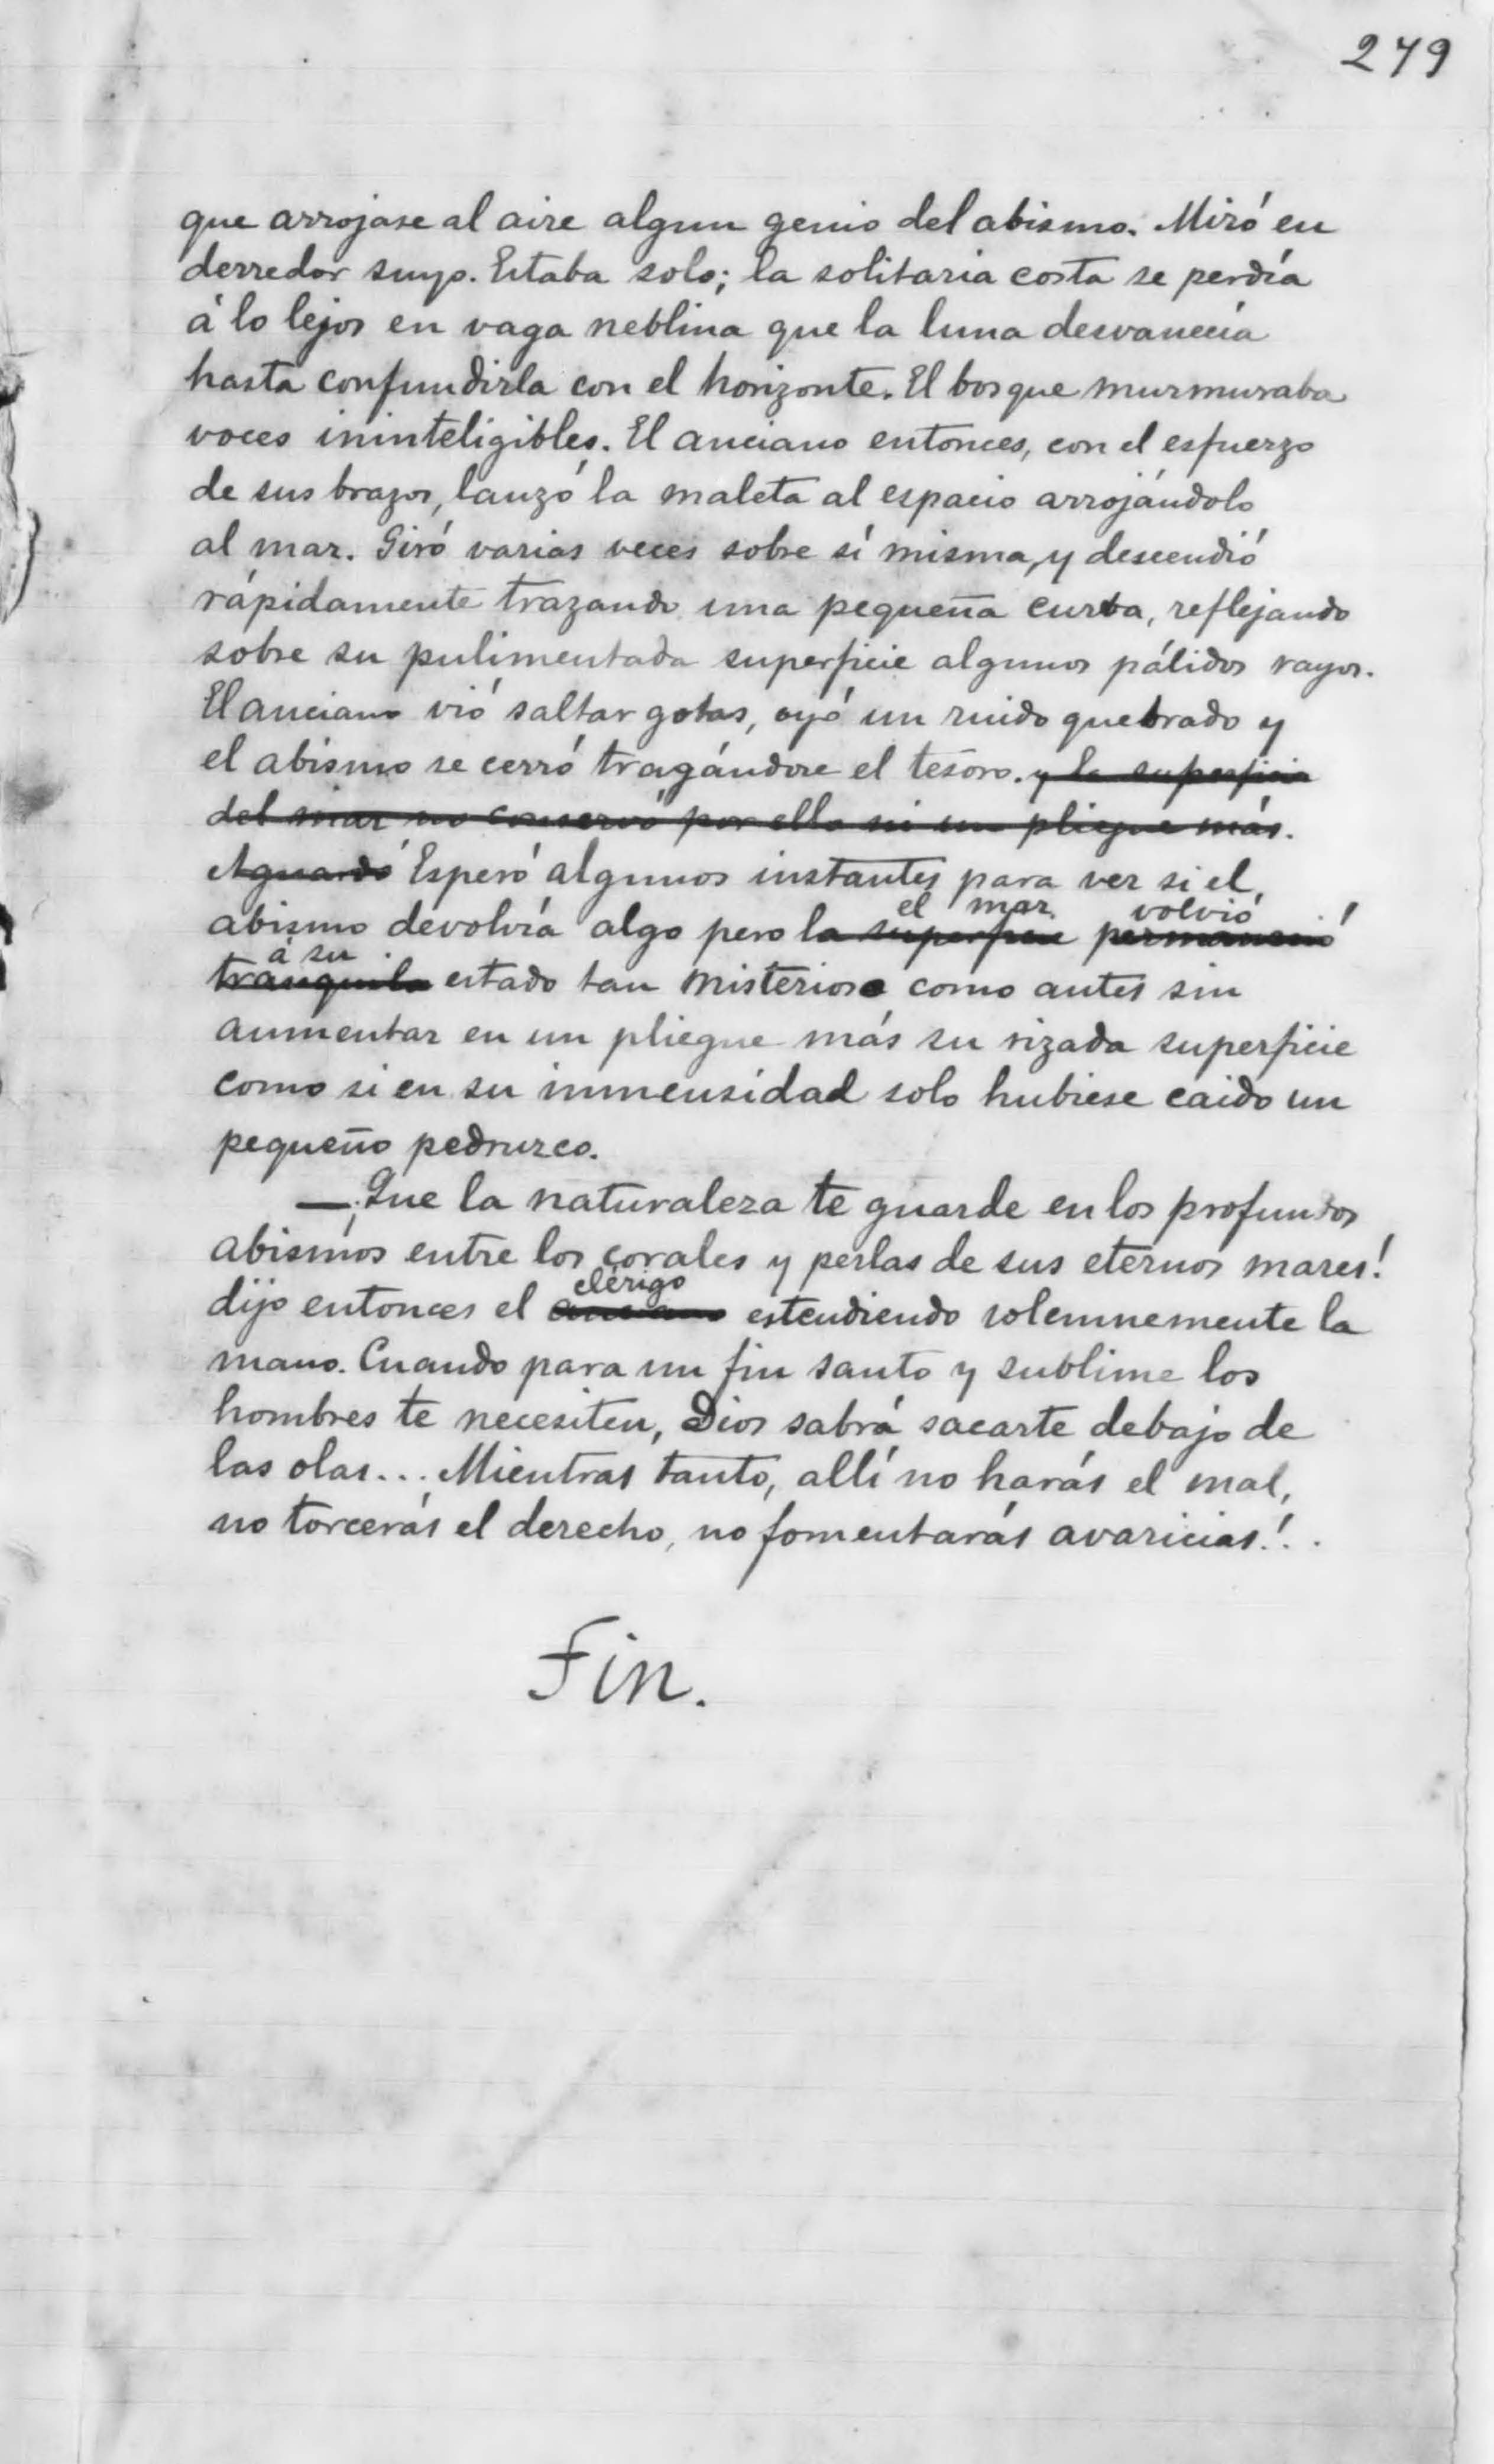 279
que arrojase al aire algun genio del abismo. Miró en
derredor suyo. Estaba solo; la solitaria costa se perdía
á lo lejos en vaga neblina que la luna desvanecía
hasta confundirla con el horizonte. El bosque murmuraba
voces ininteligibles. El anciano entonces, con el esfuerzo
de sus brazos, lanzó la maleta al espacio arrojándolo
al mar. Giró varias veces sobre sí misma, y descendió
rápidamente trazando una pequeña curva, reflejando
sobre su pulimentada superficie algunos pálidos rayos.
El anciano vió saltar gotas, oyó un ruido quebrado y
el abismo se cerró tragándose el tesoro. y la superficie
del mar no conservó por ello ni un pliegue más.
Aguardó Esperó algunos instantes para ver si el
el mar volvió
abismo devolvía algo pero la superficie permaneció
á su
tranquila estado tan misterioso como antes sin
aumentar en un pliegue más su rizada superficie
como si en su inmensidad solo hubiese caido un
pequeño pedruzco.
—¡Que la naturaleza te guarde en los profundos
abismos entre los corales y perlas de sus eternos mares!
clérigo
dijo entonces el anciano estendiendo solemnemente la
mano. Cuando para un fin santo y sublime los
hombres te necesiten, Dios sabrá sacarte debajo de
las olas... Mientras tanto, allí no harás el mal,
no torcerás el derecho, no fomentarás avaricias!..
Fin.